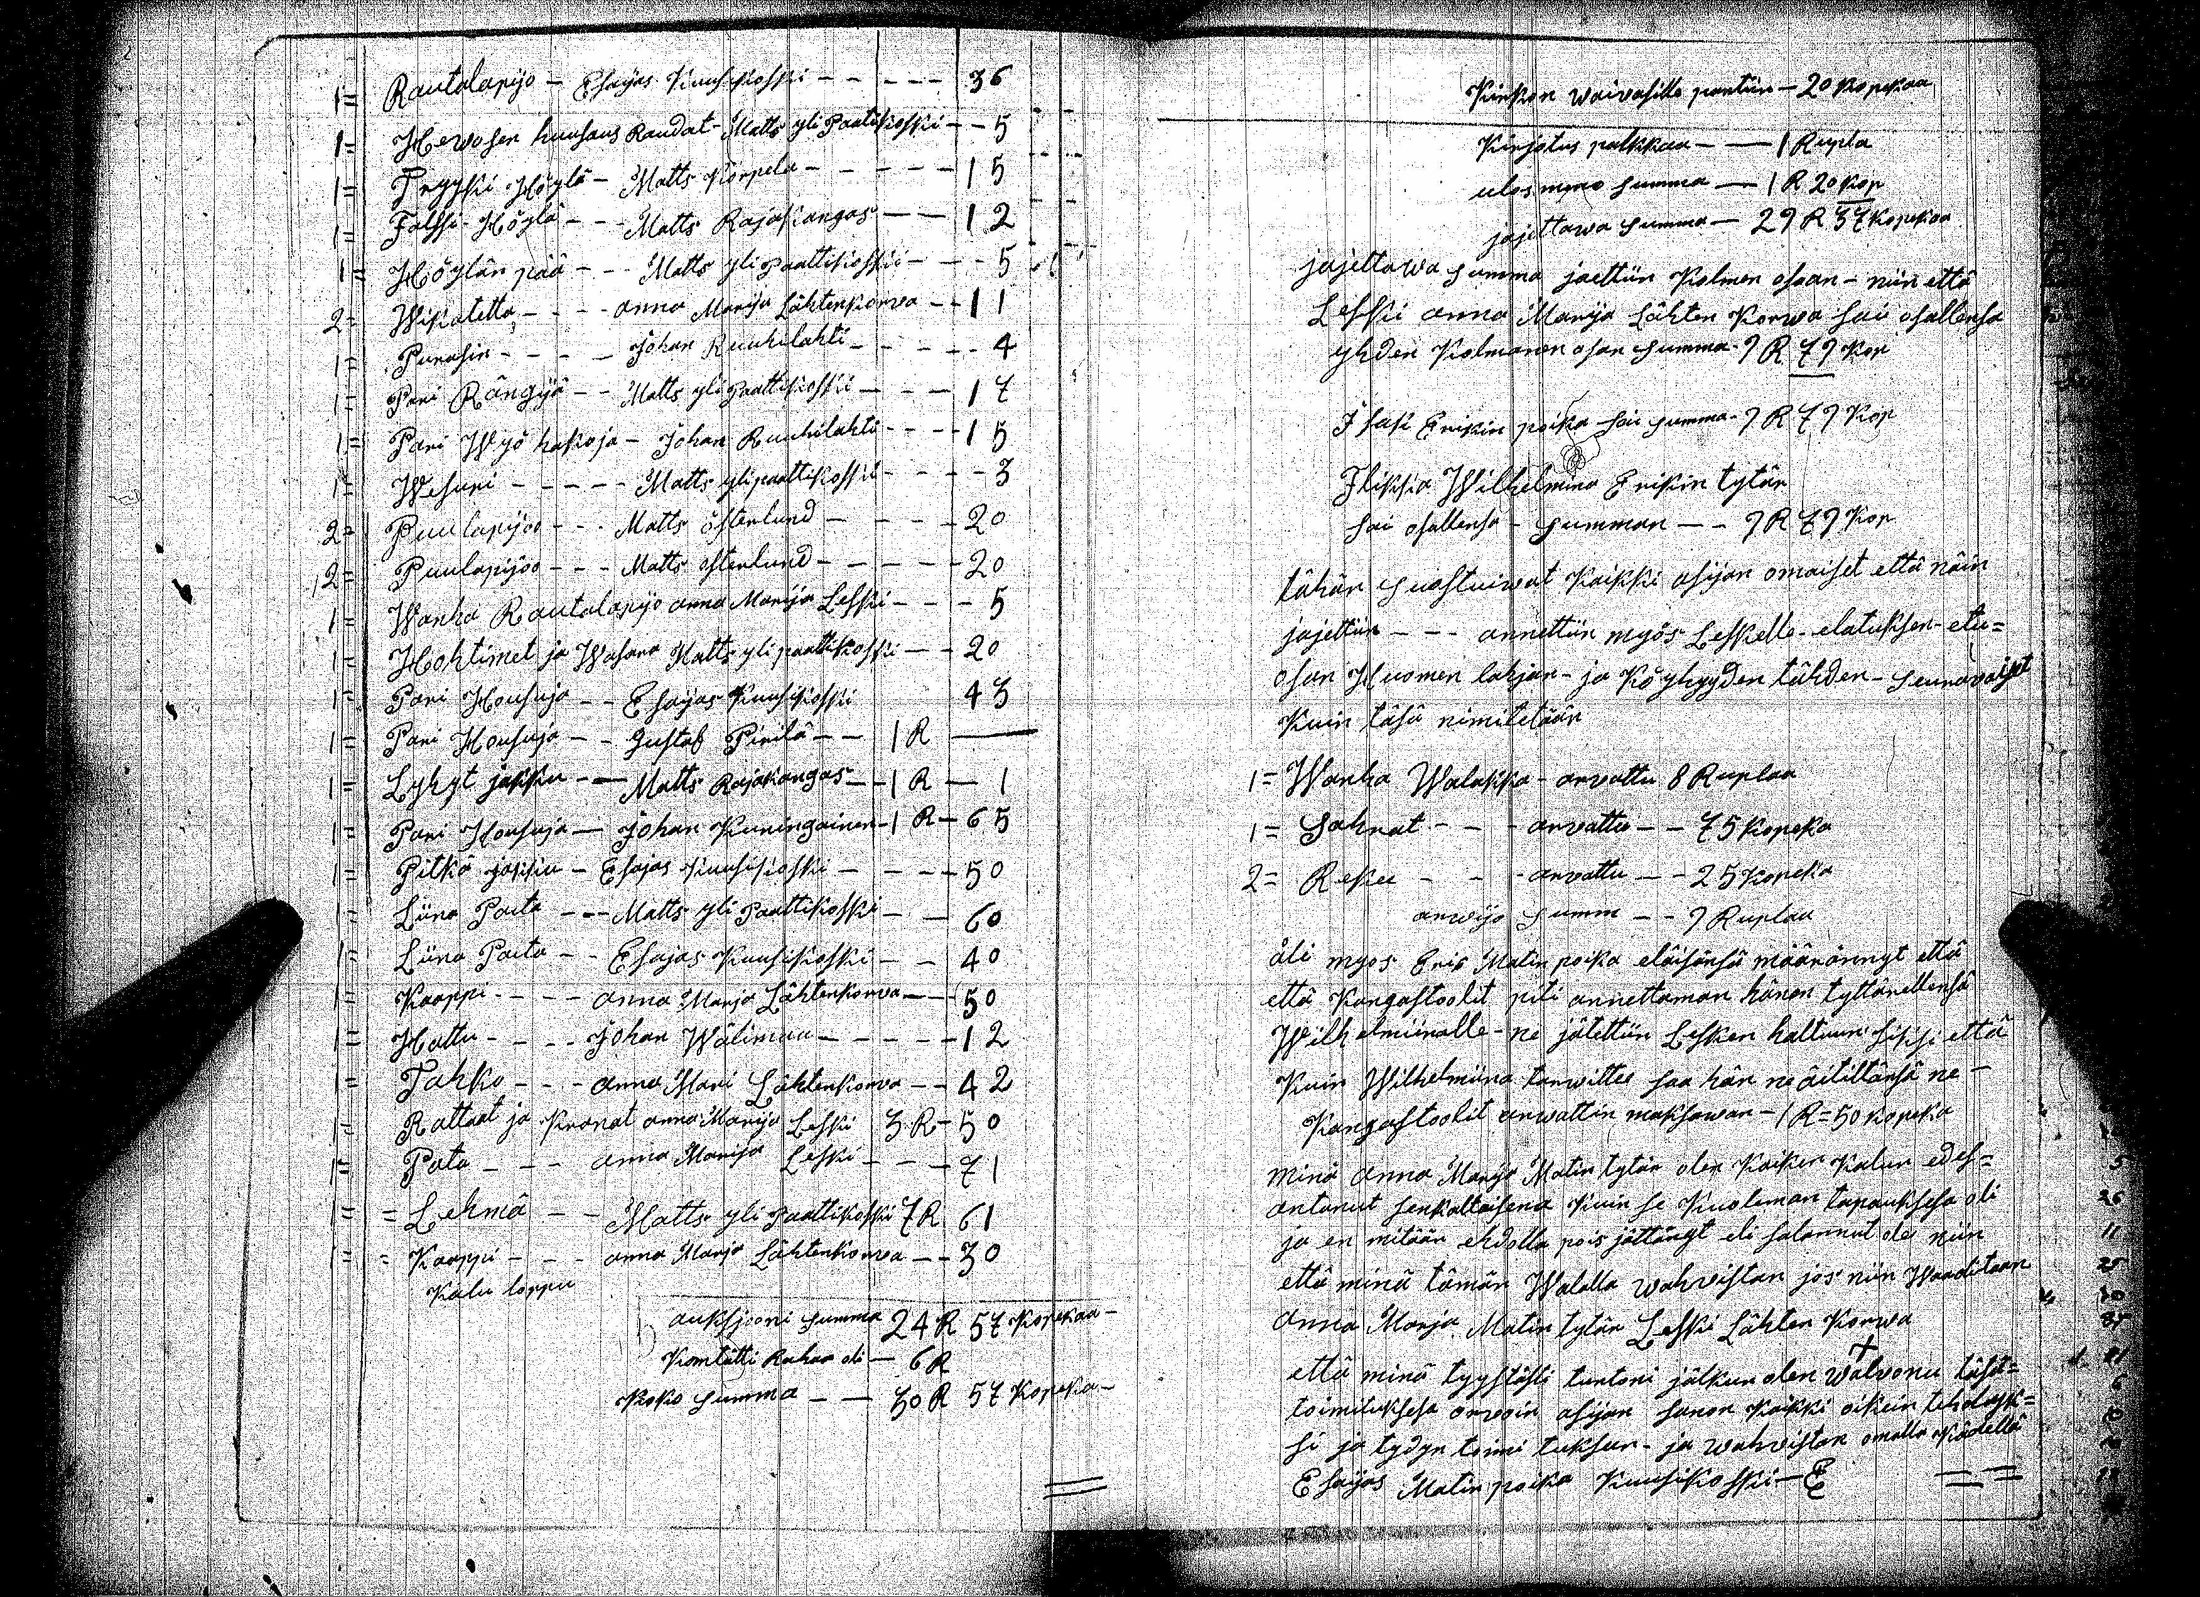 1= Rautalapijo - Esaijas Kuusikoski - - - - - 36
1= Hewosen huusaus Raudat - Matts yli Paatikoski - - 5
1= Tryyki Höylä - Matts Körpela - - - - - 15
1= Falssi-Höylä - - - Matts Rajakangas - - - 12
1= Höylän pää - - - Matts yli paattikoski - - - 5
2= Wikatetta - - - anna Marija Lähtenkorwa - - 11
1= Purasin - - - - Johan Ruuhilahti - - - - - 4
1= Pari Rängyä - - Matts yli paattikoski - - - 17
1= Pari Wyö hakoja - Johan Ruuhilahti - - - - 15
1= Wesuri - - - - - Matts yli paattikoski - - - - 3
2= Puulapijoo - - - Matts österlund - - - - 20
2= Puulapijoo - - - Matts österlund - - - - - 20
1= Wanha Rautalapijo anna Marija Leski - - - 5
1= Hohtimet ja Wasara Matts yli paattikoski - - 20
1= Pari Housuja - - Esaijas Kuusikoski 43
1= Pari Housuja - - Gustaf Pirilä - - 1 R —
1= Lyhyt jakku - - Matts Rajakangas - - 1 R - 1
1= Pari Housuja - Johan Kuningainen - 1 R - 65
1= Pitkä jakku - Esajas Kuusikoski - - - - 50
1= Liina Paita - - - Matts yli Paattikoski - - 60
1= Liina Paita - - Esajas Kuusikoski - - 40
1= Kaappi - - - - anna Marja Lähtenkorwa - - - 50
1= Hattu - - - - Johan Wälimaa - - - - - 12
1= Tahko - - - anna Mari Lähtenkorwa - - 42
1= Rattaat ja Kranat anna Marija Leski 3 R - 50
1= Pata - - - anna Marija Leski - - - 71
1= = Lehmä - - Matts yli paattikoski 7 R 61
1= = Kaappi - - - anna Marja Lähtenkorwa - - 30
Kalu loppu
auksjooni summa 24 R 57 Kopekaa -
Komtätti Rahaa oli - 6 R
Koko summa - - 30 R 57 Kopeka -
Kirkon waivasille pantiin - 20 Kopekaa
Kirjotus palkkaa - - 1 Rupla
ulos meno summa - 1 R 20 Kop
jajettawa summa - 29 R 37 Kopekaa
jajettawa summa jaettiin Kolmen osaan - niin että
Leski anna Marija Lähten Korwa sai osallensa
yhden Kolmanen osan summa - 9 R 79 Kop
Isaki Erikin poika sai summa - 9 R 79 Kop
Flikka Wilhelmina Erikin tytär
sai osallensa - summan - - 9 R 79 Kop
tähän suostuiwat Kaikki asijan omaiset että näin
jajettiin - - - annettiin myös Leskelle - elatuksen - etu=
osan Huomen lahjan - ja Köyhyyden tähden - seuravaiset
Kuin täsä nimitetään
1= Wanha Walakka - arvattu 8 Ruplaa
1= Sahrat - - - arvattu - - 75 Kopeka
2= Rekee - - - arvattu - - 25 Kopeka
arwijo Summ - - 9 Ruplaa
äli myos Eric Matin poika eläisänsä määrännyt että
että Kangastoolit piti annettaman hänen tyttärellensä
Wilhelmiinalle - ne jätettiin Lesken haltuun siksi että
Kuin Wilhelmiina tarwittee saa hän ne äitiltänsä ne -
Kangastoolit arwattiin maksawan - 1 R = 50 Kopeka
minä anna Marija Matin tytär olen Kaiken Kalun edes=
antanut senkaltaisena Kuin se Kuoleman tapauksesa oli
ja en mitään ehdolla pois jättänyt eli salannut ole niin
että minä tämän Walalla wahwistan jos niin Waaditaan
anna Marja Matin tytär Leski Lähten Korwa
+
että minä tyystästi tuntoni jälkun olen walvonu täsä=
toimituksesa arwoin asijan sanon Kaikki oikein tehdyyk=
si ja tydyn toimi tuksun - ja wahvistan omalla Kädellä
Esaijas Matin poika Kuusikoski - E